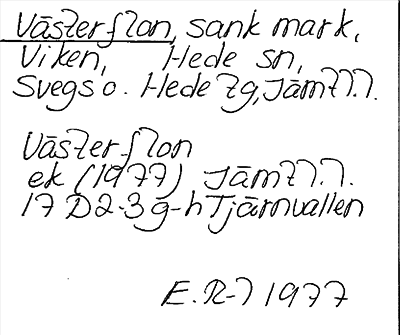 Västerflon, sank mark,
Viken, Hede sn,
Svegs o. Hede tg, Jämtl.l.
Västerflon
ek (1977) Jämtl.l.
17 D2-3g-h Tjärnvallen
E.R-l 1977